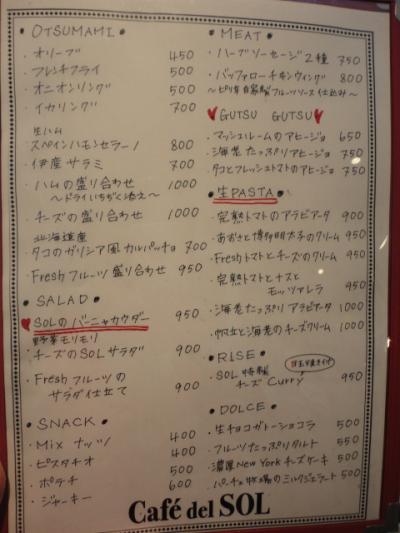 • OTSUMAMI •
・オリーブ 450
・フレンチフライ 500
・オニオンリング 500
・イカリング 700
生ハム
・スペインハモンセラーノ 800
・伊産サラミ 700
・ハムの盛り合わせ 1000
〜ドライいちぢく添え〜
・チーズの盛り合わせ 1000
北海道産
・タコのガリシア風カルパッチョ 700
・Freshフルーツ盛り合わせ 950
• SALAD •
♥SOLのバーニャカウダー 950
野菜モリモリ
・チーズのSOLサラダ 900
・Freshフルーツの
サラダ仕立て 900
• SNACK •
・Mixナッツ 400
・ピスタチオ 400
・ポテチ 500
・ジャーキー 600
• MEAT •
・ハーブソーセージ2種 750
・バッファローチキンウィング 800
〜ピリ辛自家製フルーツソース仕込み〜
♥GUTSU GUTSU♥
・マッシュルームのアヒージョ 650
・海老たっぷりアヒージョ 750
・タコとフレッシュトマトのアヒージョ 750
• 生PASTA •
・完熟トマトのアラビアータ 900
・あおさと博多明太子のクリーム 950
・Freshトマトとチーズのクリーム 950
・完熟トマトとナスと
モッツアレラ 950
・海老たっぷりアラビアータ 1000
・帆立と海老のチーズクリーム 1000
• RISE •
・SOL特製
チーズCurry 950
• DOLCE •
・生チョコガトーショコラ 500
・フルーツたっぷりタルト 550
・濃厚New Yorkチーズケーキ 500
・パーチェ牧場のミルクジェラート 500
Café del SOL